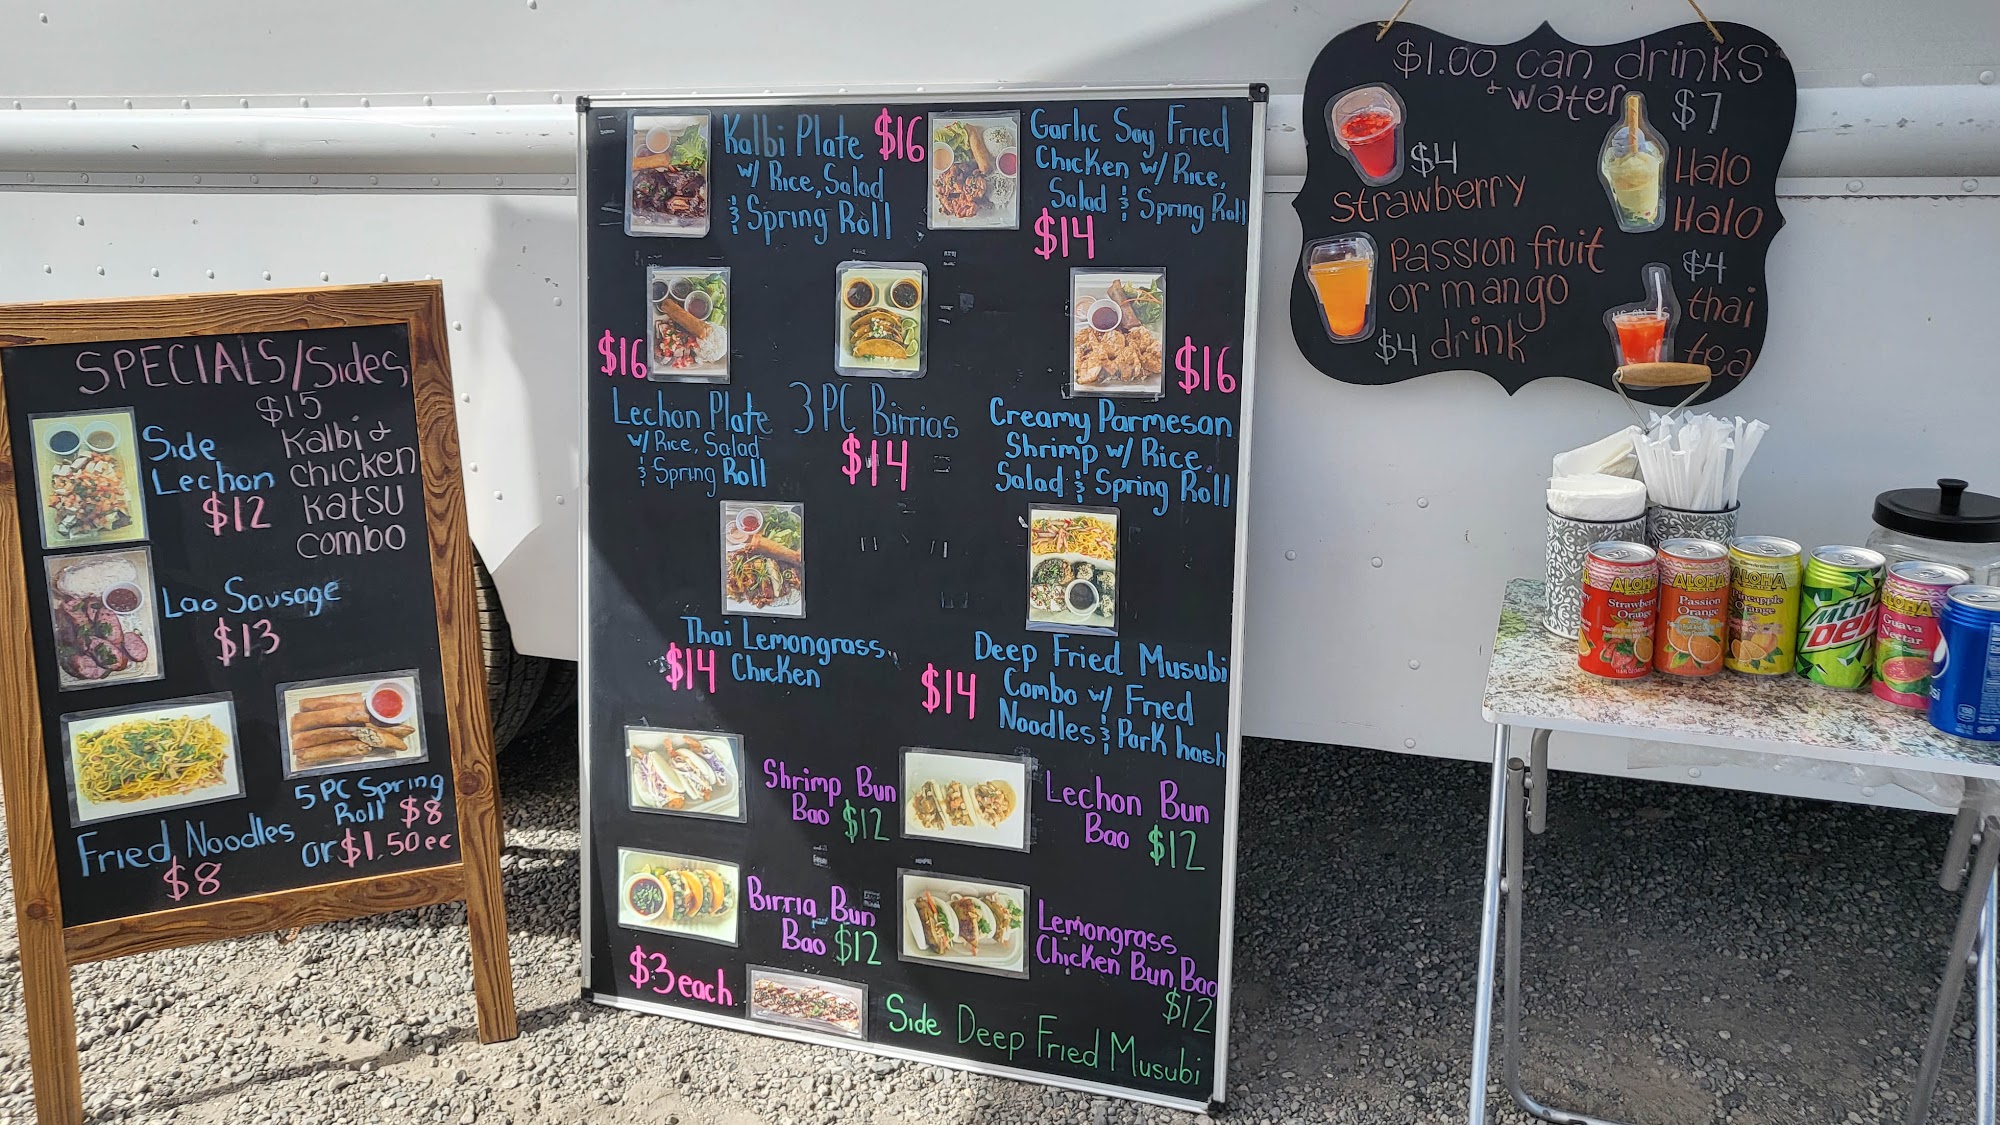 SPECIALS/Sides
$15
Kalbi &
chicken
Katsu
combo
Side
Lechon
$12
Lao Sausage
$13
Fried Noodles
$8
5 PC Spring
Roll $8
or $1.50 ec
Kalbi Plate $16
w/ Rice, Salad
& Spring Roll
Garlic Soy Fried
Chicken w/ Rice,
Salad & Spring Roll
$14
$16
Lechon Plate
w/ Rice, Salad
& Spring Roll
3 PC Birrias
$14
$16
Creamy Parmesan
Shrimp w/ Rice
Salad & Spring Roll
Thai Lemongrass
$14 Chicken
Deep Fried Musubi
$14 Combo w/ Fried
Noodles & Pork hash
Shrimp Bun
Bao $12
Lechon Bun
Bao $12
Birria Bun
Bao $12
Lemongrass
Chicken Bun Bao
$12
$3 each
Side Deep Fried Musubi
$1.00 can drinks
+ water
$4
strawberry
$7
Halo
Halo
Passion fruit
or mango
$4 drink
$4
thai
tea
ALOHA
Strawberry
Orange
ALOHA
Passion
Orange
ALOHA
Pineapple
Orange
Mtn
Dew
ALOHA
Guava
Nectar